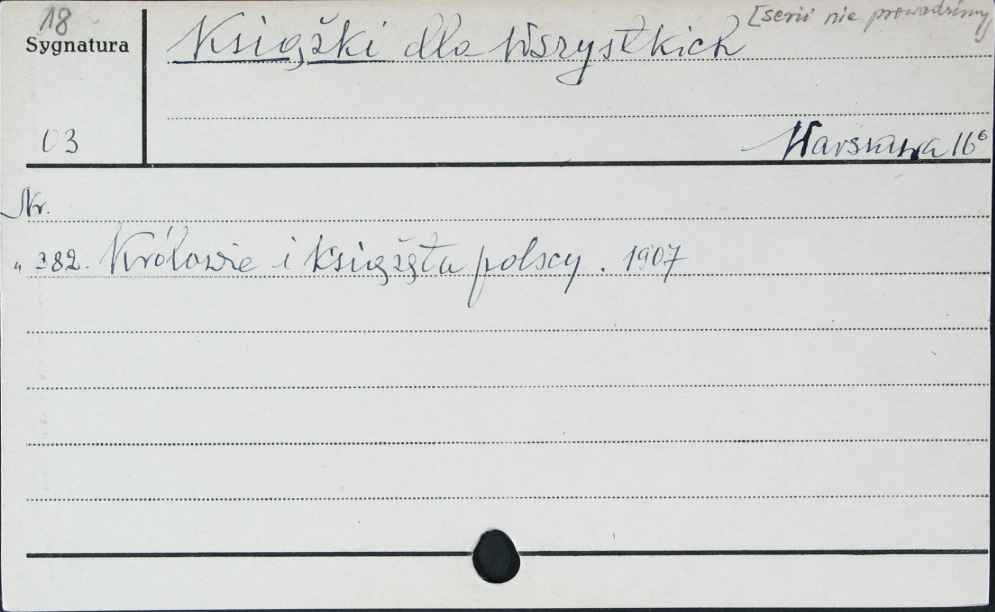 18 [serii nie prowadzimy
Sygnatura Książki dla Wszystkich
03 Warszawa 16°
Nr.
" 382. Królowie i książęta polscy. 1907